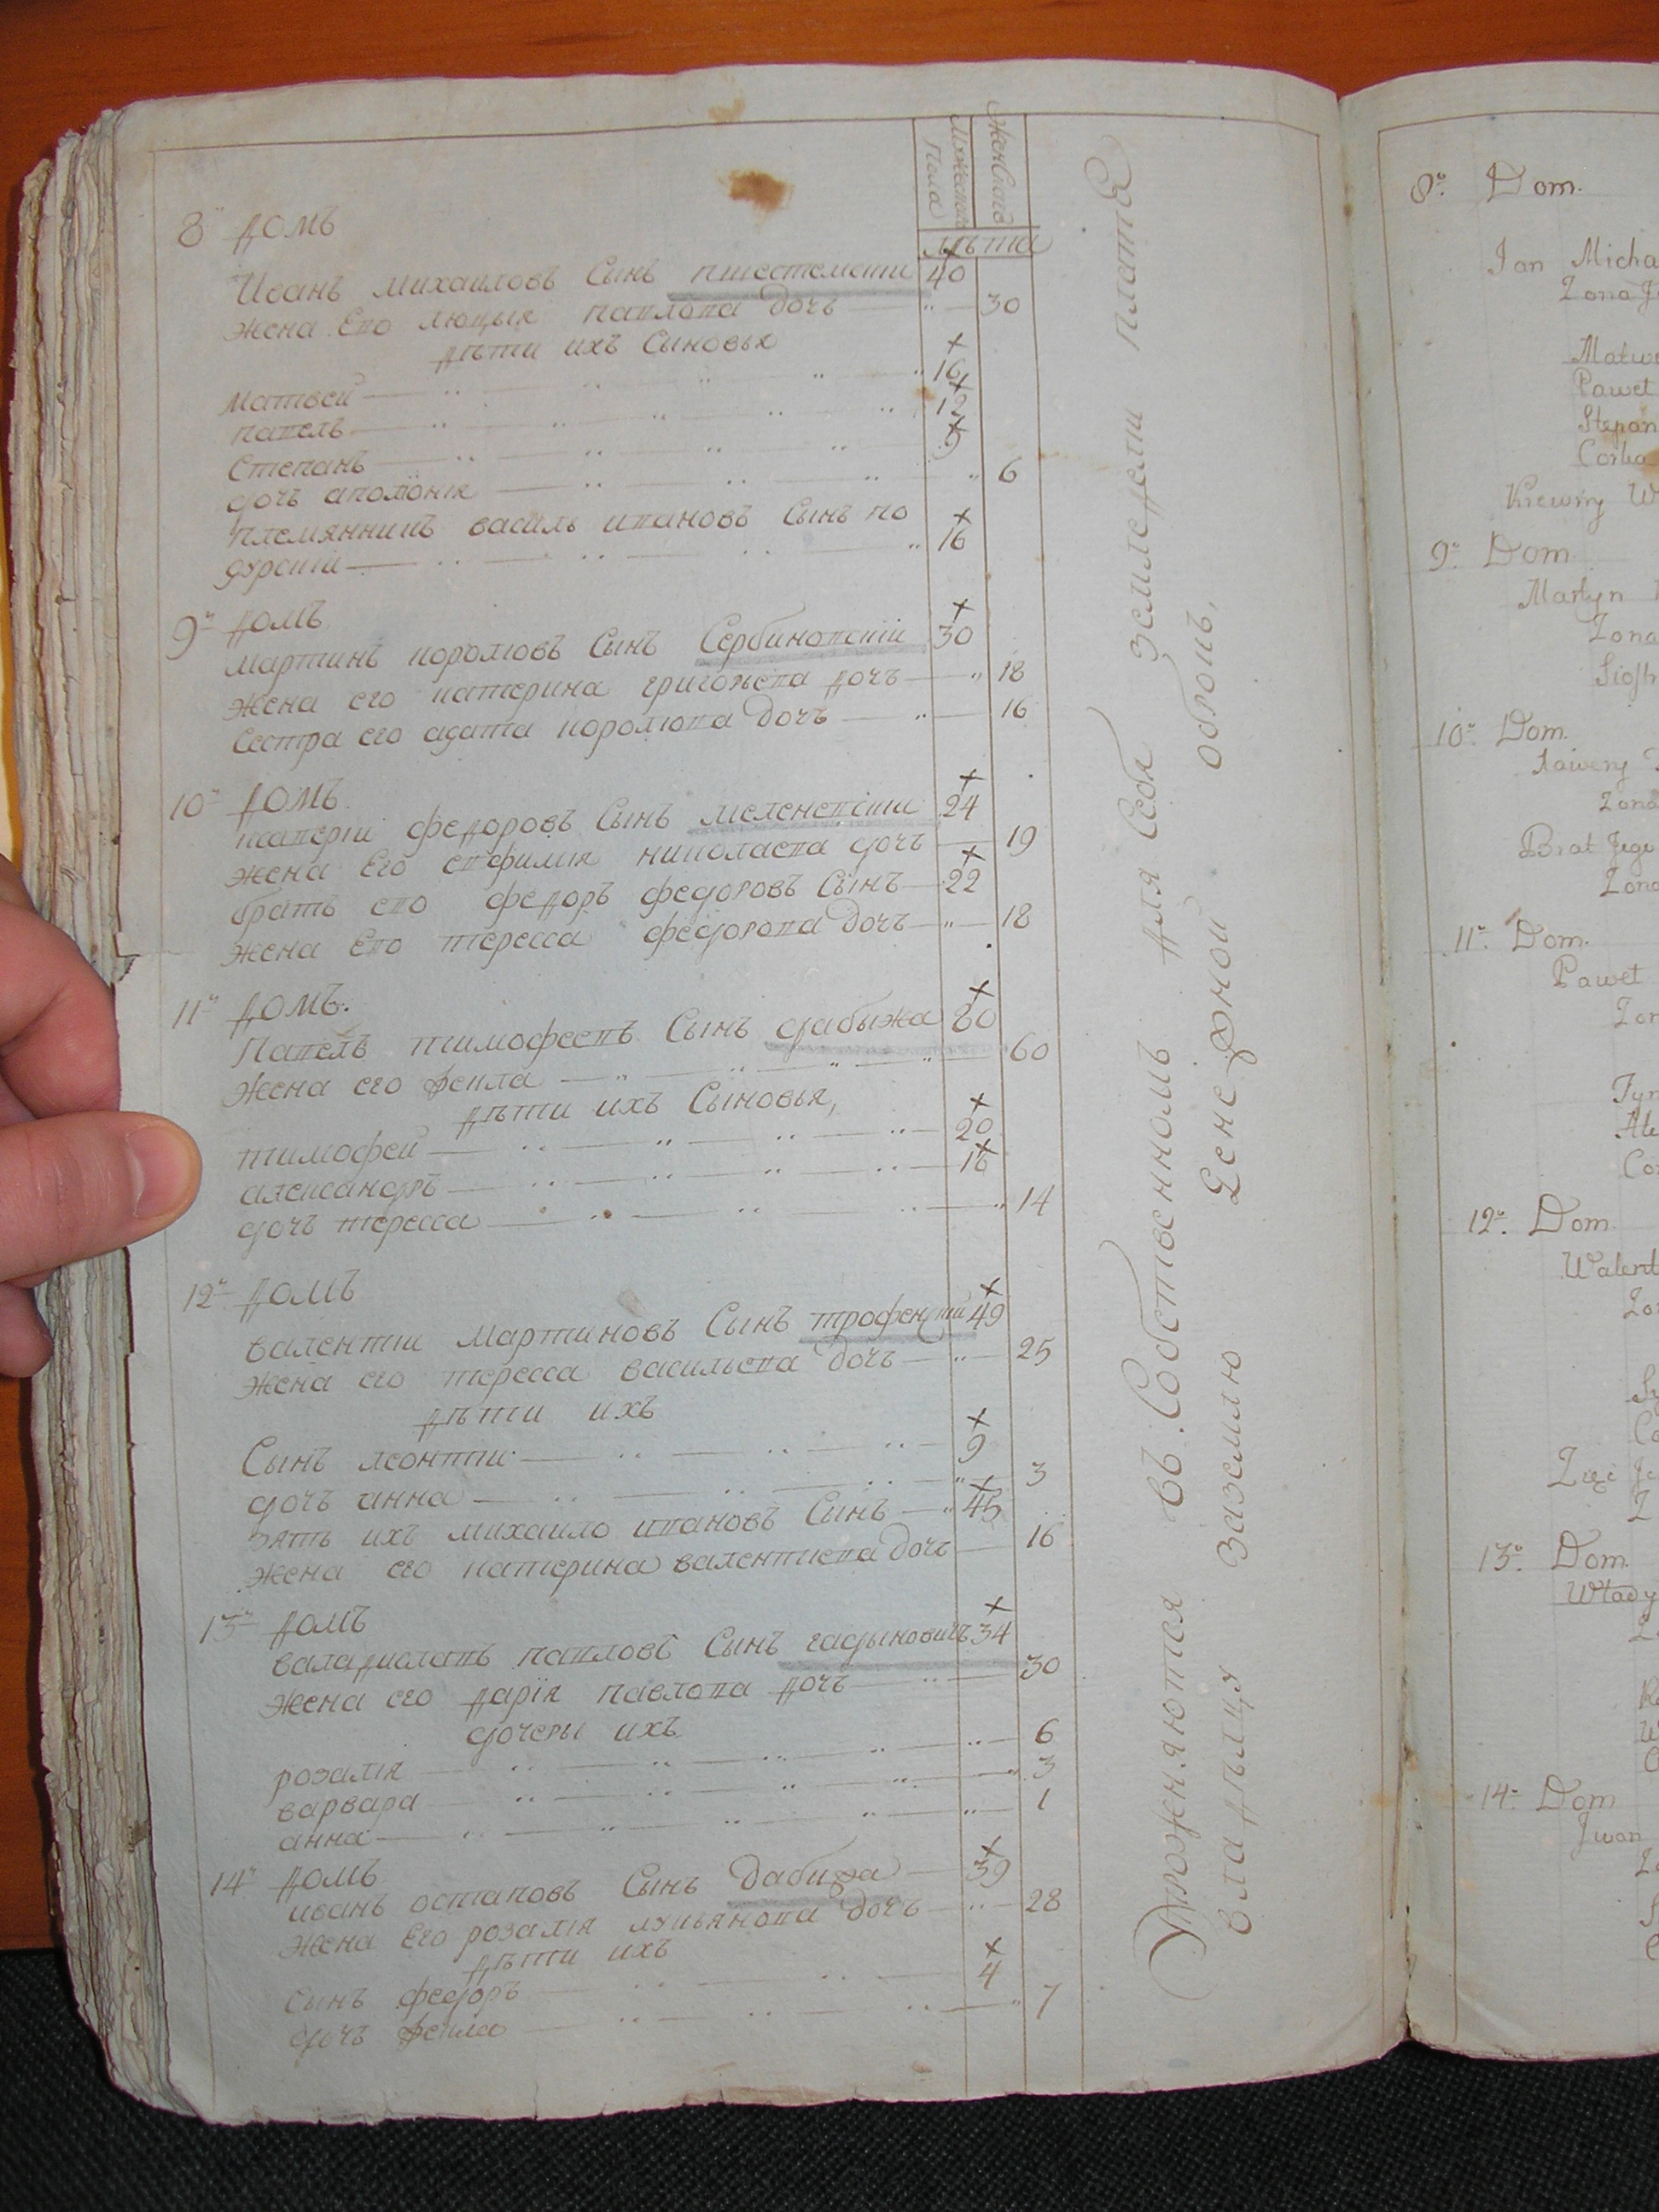 Мужеска Пола
Женскаго
лѣта
8й домъ
Иванъ михаиловъ Сынъ 40
жена Его люцыя павлова дочъ 30
дѣти ихъ Сыновья
матвей 16
павелъ 12
Степанъ 9
дочъ аполонiя 6
племянникъ василь ивановъ Сынъ по
дурскiй 16
9й домъ
мартинъ королювъ Сынъ Сербиновскiй 30
жена его катерина григорьева дочъ 18
Сестра его агата королюва дочъ 16
10й домъ
ксаверiй федоровъ Сынъ меленевскiй 24
жена Его евфимiя николаева дочъ 19
братъ его федоръ федоровъ Сынъ 22
жена Его тересса федорова дочъ 18
11й домъ.
Павелъ тимофеевъ Сынъ дабыжа 80
жена его фекла 60
дѣти ихъ Сыновья,
тимофей 20
александръ 16
дочъ тересса 14
12й домъ
валентiй мартиновъ Сынъ 49
жена его тересса васильева дочъ 25
дѣти ихъ
Сынъ леонтiй 9
дочъ анна 3
зять ихъ михайло ивановъ Сынъ 45
жена его катерина валентiева дочъ 16
13й домъ
валадиславъ павловъ Сынъ гадыновичъ 34
жена его дарiя павлова дочъ 30
дочеры ихъ
розалiя 6
варвара 3
анна 1
14й домъ
иванъ остаповъ Сынъ дабижа 39
жена Его розалiя лукьянова дочъ 28
дѣти ихъ
сынъ федоръ 4
дочъ фекла 7
Упрожняются въ Собственномъ для Себя земледелiи платя
владѣлцу заземлю Денежной оброкъ.
8o. Dom.
Jan Micha
Zona Je
Matwe
Pawet
Stepan
Corka
Krewny W
9o. Dom
Martyn
Zona
Siostr
10o. Dom.
Zona
Brat Jego
Zona
11o. Dom.
Pawet
Zon
Tym
Ale
Cor
12o. Dom
Walent
Zon
Sy
Co
Ziec Je
Z
13o. Dom.
Wtady
14o Dom
Jwan